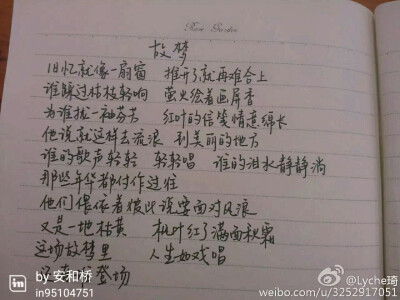 Rose Garden
故梦
旧忆就像一扇窗 推开了就再难合上
谁踩过枯枝轻响 萤火绘着画屏香
为谁拢一袖芬芳 红叶的信笺情意绵长
他说就这样去流浪 到美丽的地方
谁的歌声轻轻 轻轻唱 谁的泪水静静淌
那些年华都付作过往
他们偎依着彼此说要面对风浪
又是一地枯黄 枫叶红了满面秋霜
这场故梦里 人生如戏唱
登场
in 安和桥
in95104751
@Lyche琦
weibo.com/u/3252917051